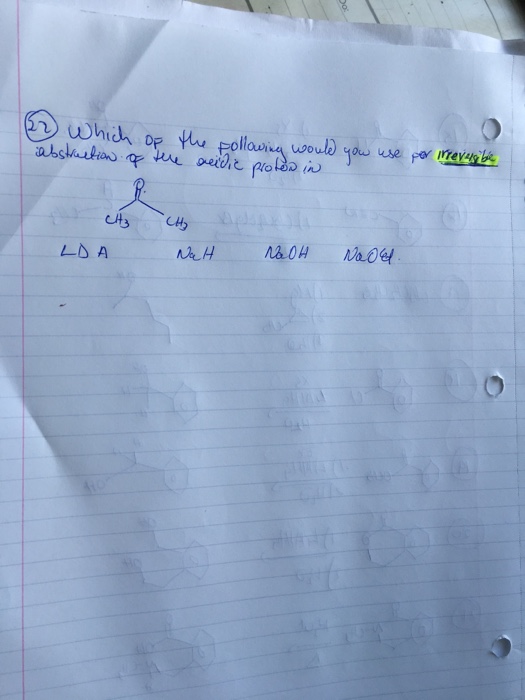 22 Which of the following would you use for irreversible
abstraction of the acidic proton in
O
CH3 CH3
LDA NaH NaOH NaOEt.